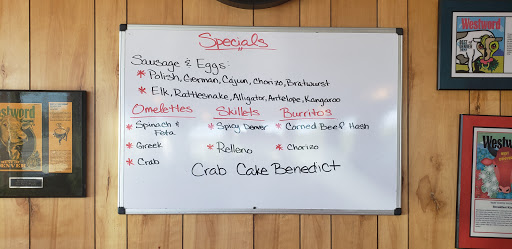 Specials
Sausage & Eggs
* Polish, German, Cajun, Chorizo, Bratwurst
* Elk, Rattlesnake, Alligator, Antelope, Kangaroo
Omelettes
* Spinach & Feta
* Greek
* Crab
Skillets
* Spicy Denver
* Relleno
Burritos
* Corned Beef Hash
* Chorizo
Crab Cake Benedict
Westword
Westword
Westword